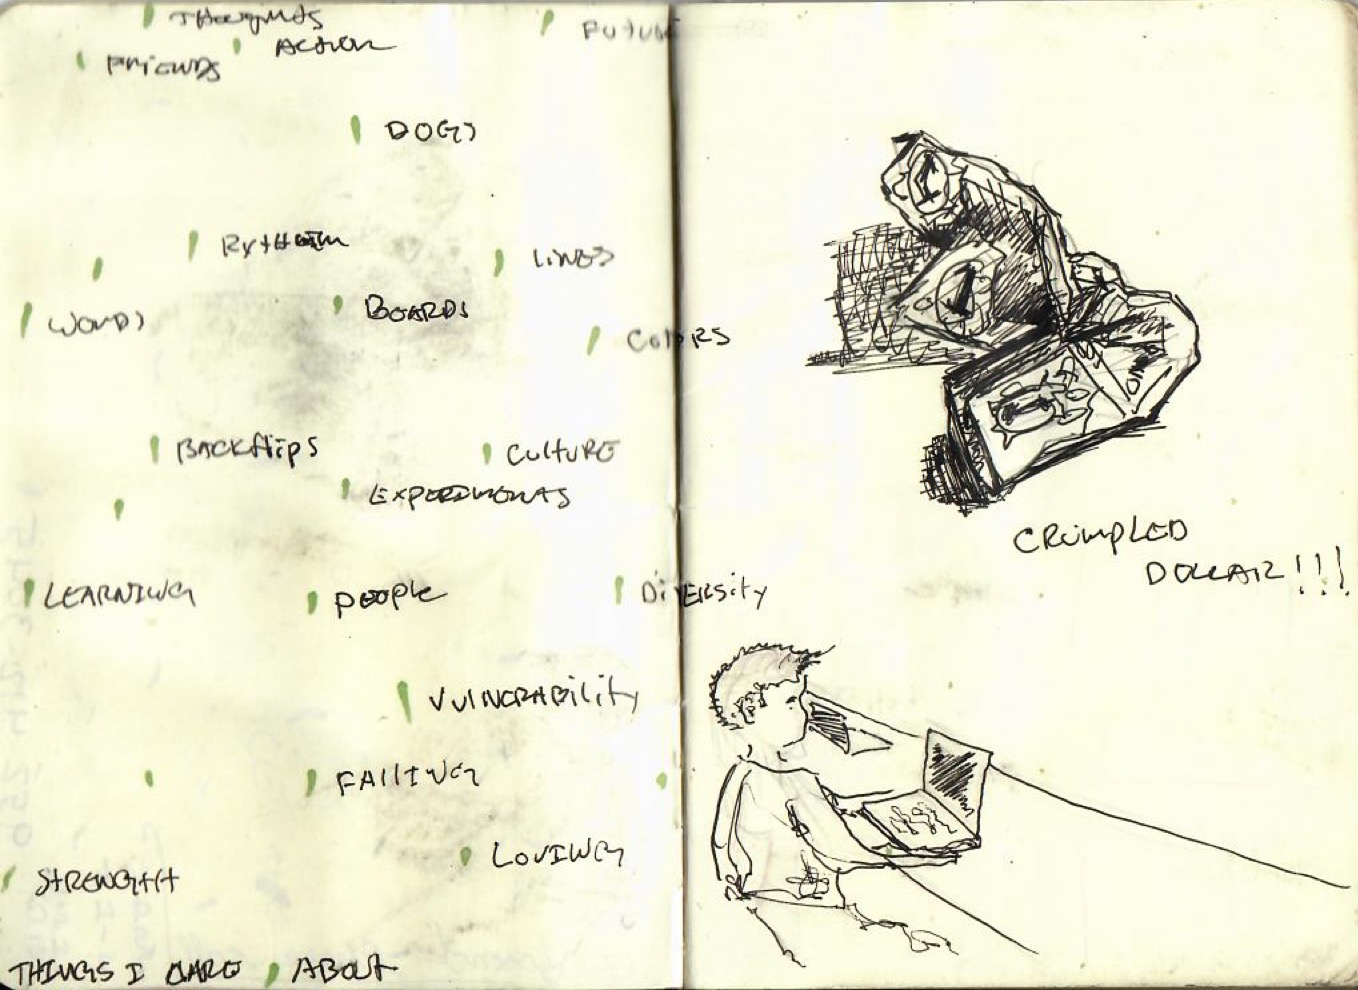 THOUGHTS
FUTURE
ACTION
FRIENDS
DOGS
RYTHEM
LINES
WORDS
BOARDS
COLORS
BACKflips
CULTURE
EXPERIMENTS
LEARNING
PEOPLE
DiVERSity
VULNERABility
FAILING
LOVING
STRENGHT
THINGS I CARE ABOUT
CRUMPLED
DOLLAR!!!